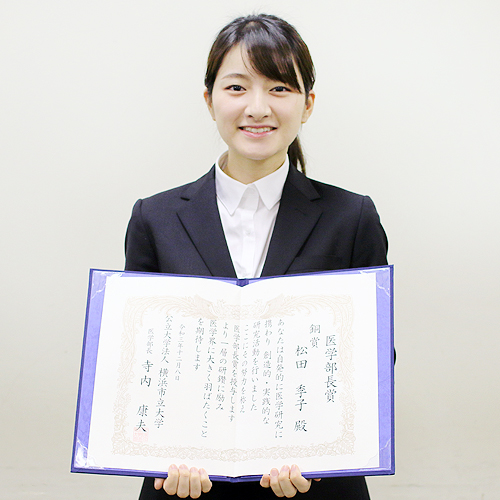 医学部長賞
銅賞
松田 季子 殿
あなたは自発的に医学研究に
携わり 創造的・実践的な
研究活動を行いました
ここにその努力を称え
医学部長賞を授与します
より一層の研鑽に励み
医学界に大きく羽ばたくこと
を期待します
令和二年十二月八日
公立大学法人 横浜市立大学
医学部長 寺内 康夫